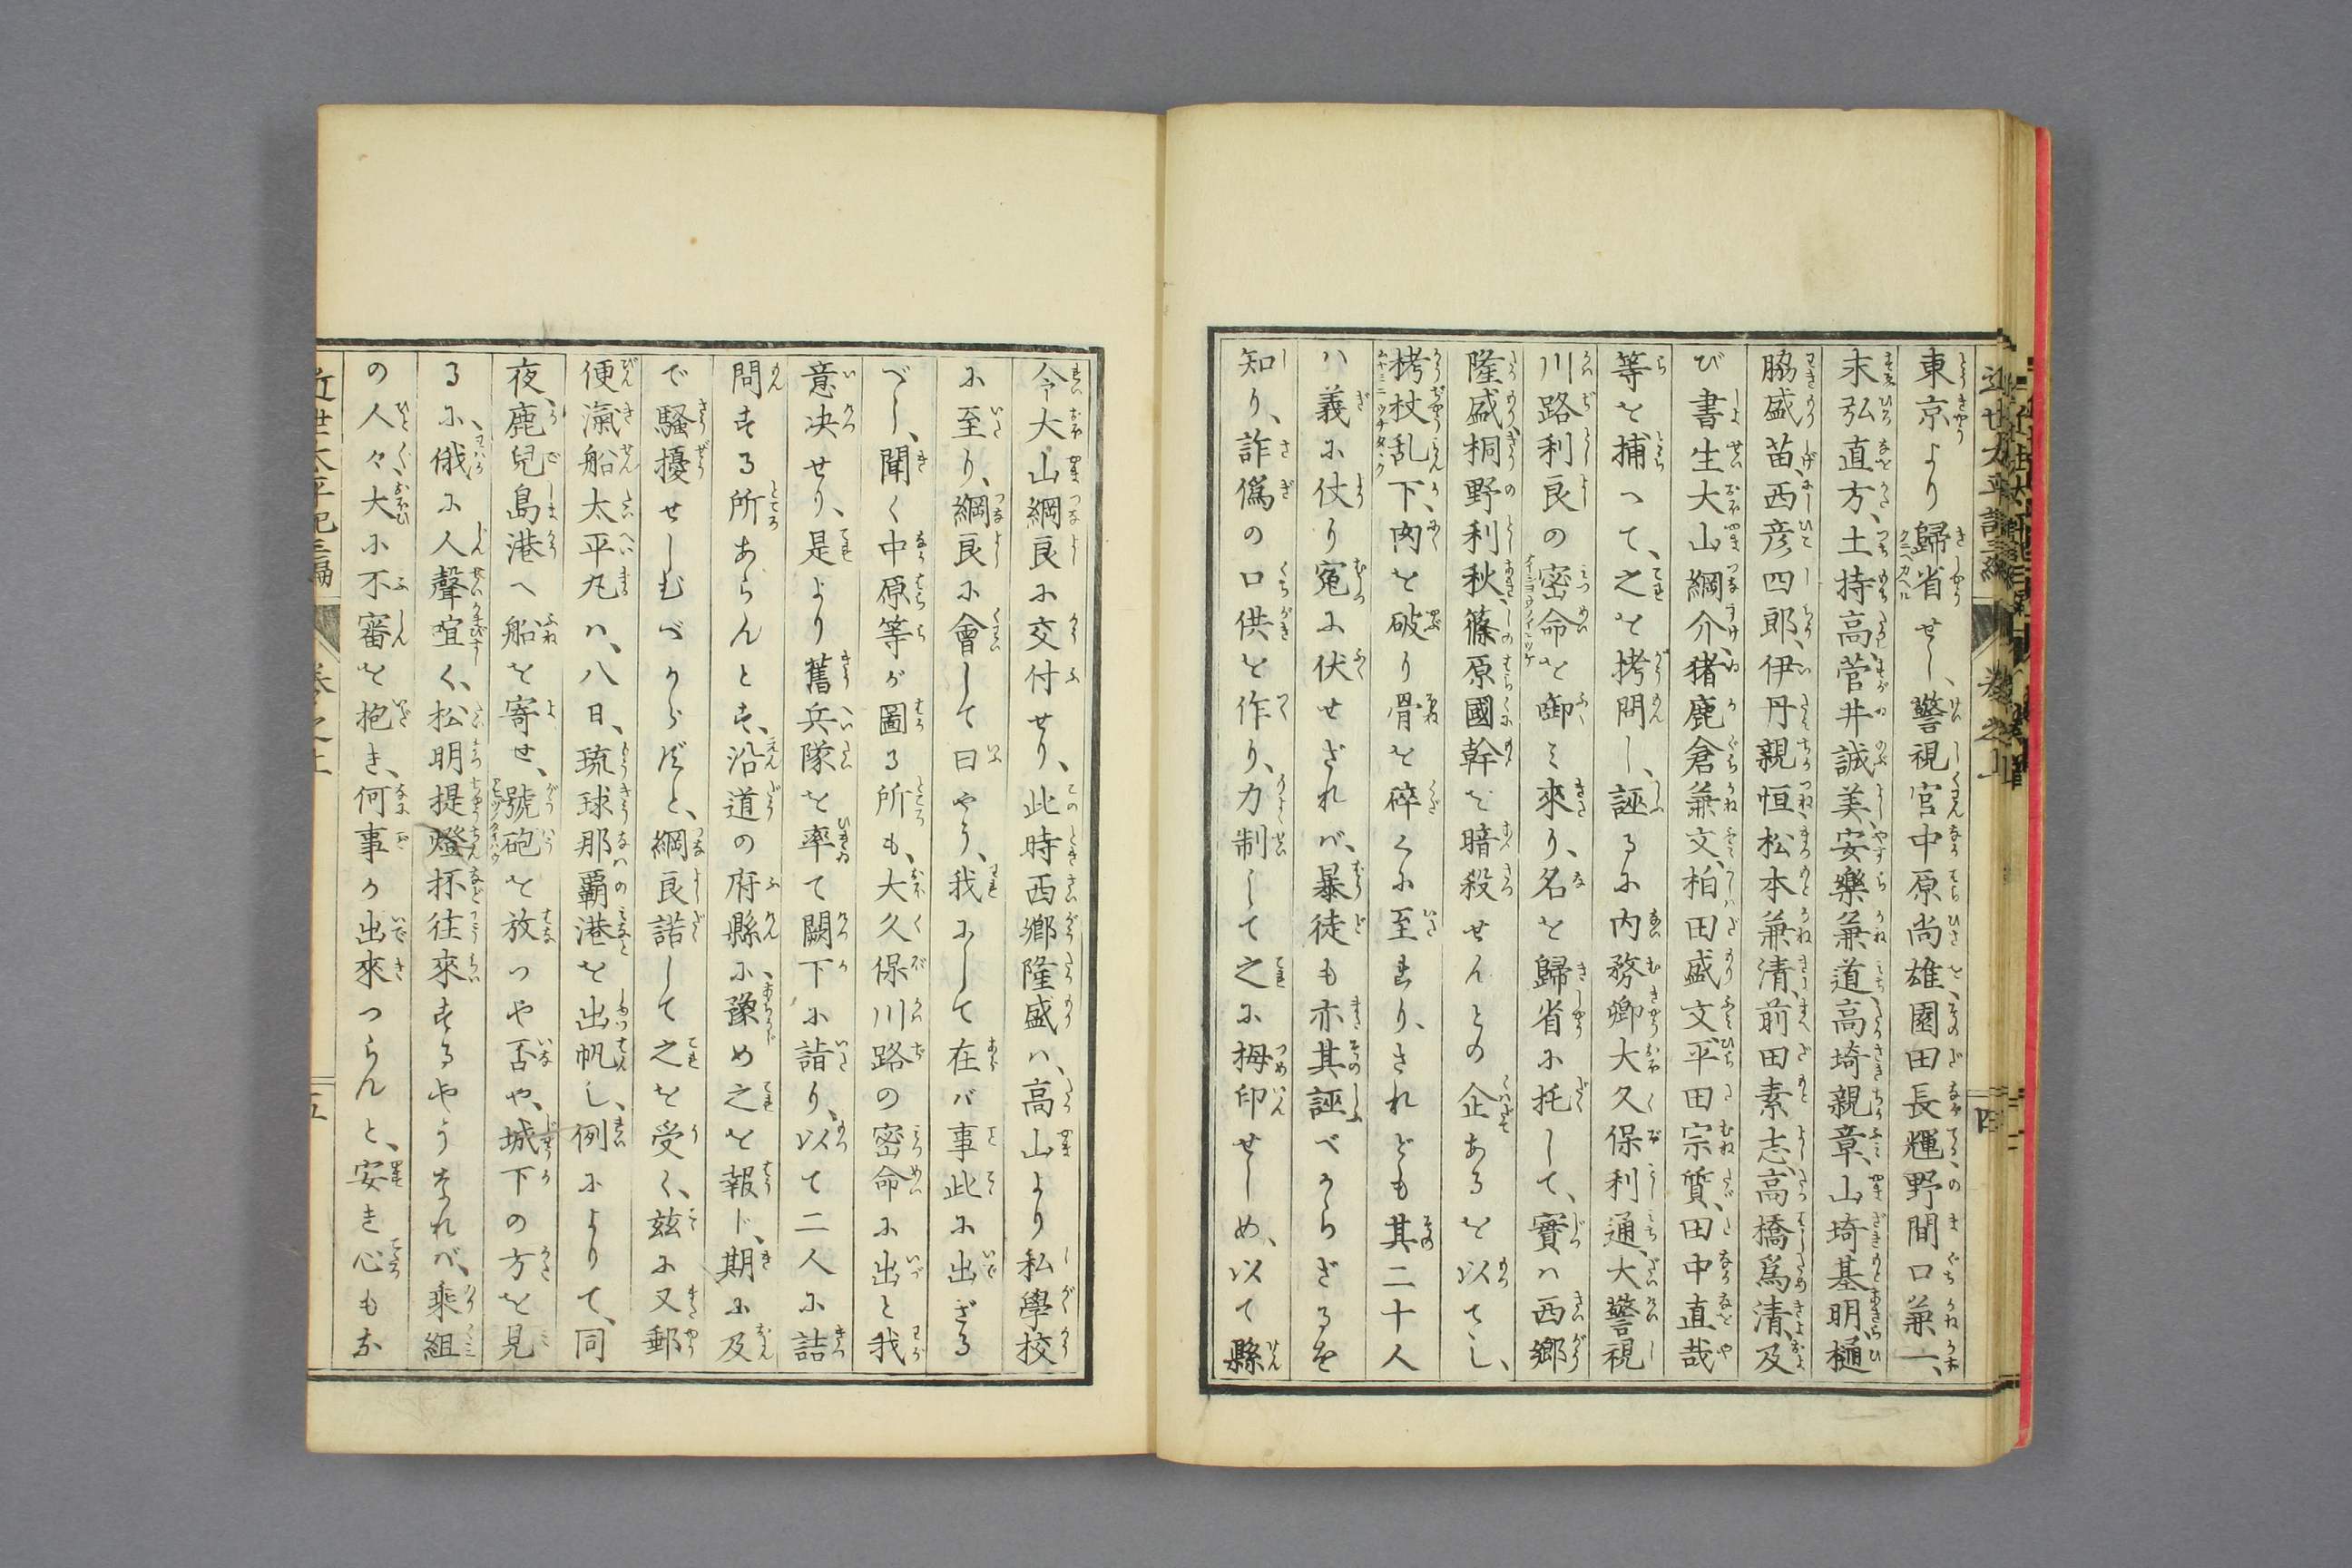 東京より歸省せし、警視官中原尚雄、園田長輝、野間口兼一、
末弘直方、土持高、菅井誠美、安樂兼道、高崎親章、山崎基明、樋
脇盛苗、西彦四郎、伊丹親恒、松本兼清、前田素志、高橋爲清、及
び書生大山綱介、猪鹿倉兼文、柏田盛文、平田宗質、田中直哉
等を捕へて、之を拷問し、誣るに内務卿大久保利通、大警視
川路利良の密命を啣み來り、名を歸省に托して、實は西郷
隆盛、桐野利秋、篠原國幹を暗殺せんとの企あるを以てし、
拷杖乱下、肉を破り骨を碎くに至れり、されども其二十人
ハ義に仗り寃に伏せざれバ、暴徒も亦其誣べからざるを
知り、詐偽の口供を作り、力制して之に拇印せしめ、以て縣
令大山綱良に交付せり、此時西郷隆盛ハ、高山より私學校
に至り、綱良に會して曰やう、我にして在バ事此に出ざる
べし、聞く中原等が圖る所も、大久保川路の密命に出と我
意决せり、是より舊兵隊を率て闕下に詣り、以て二人に詰
問する所あらんとす、沿道の府縣に、豫め之を報じ、期に及
で騒擾せしむべからずと、綱良諾して之を受く、玆に又郵
便滊船太平丸ハ、八日、琉球那覇港を出帆し、例によりて、同
夜、鹿兒島港へ船を寄せ、號砲を放つや否や、城下の方を見
るに、俄に人聲喧く、松明提燈抔往來するやうなれバ、乘組
の人々大に不審を抱き、何事か出來つらんと、安き心もな
近世太平記三編 巻之上 五